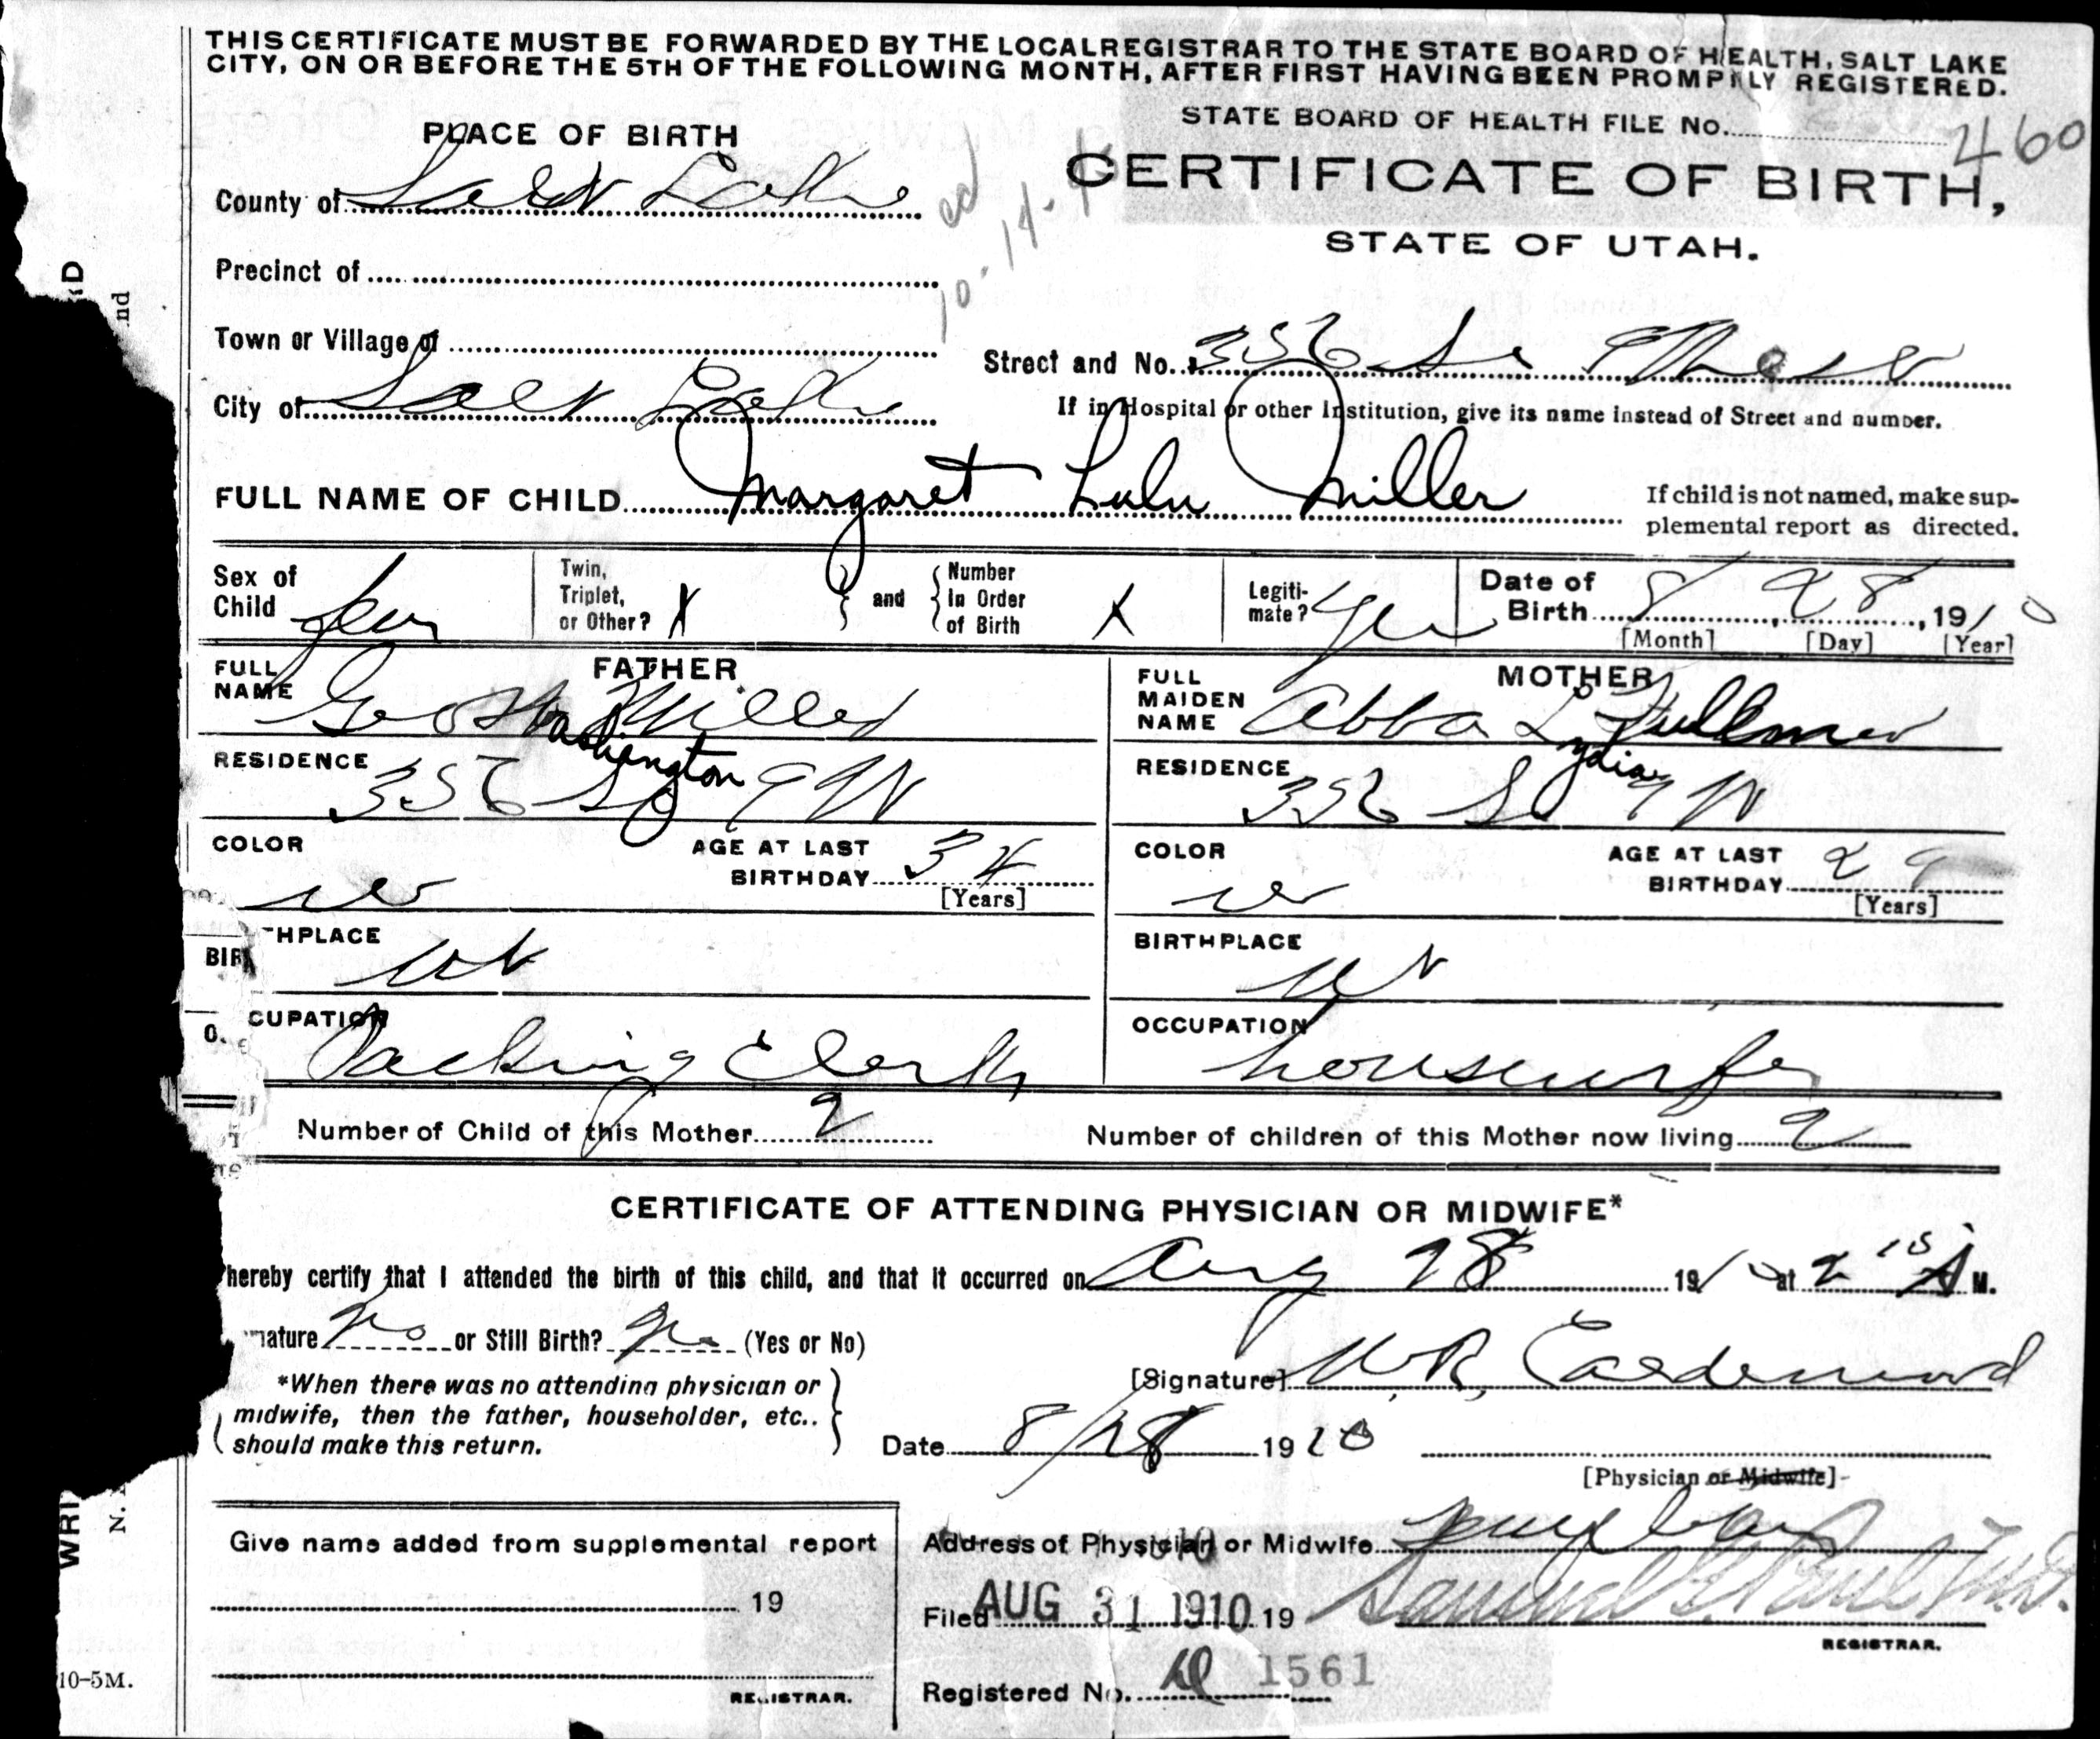 THIS CERTIFICATE MUST BE FORWARDED BY THE LOCAL REGISTRAR TO THE STATE BOARD OF HEALTH, SALT LAKE
CITY, ON OR BEFORE THE 5TH OF THE FOLLOWING MONTH, AFTER FIRST HAVING BEEN PROMPTLY REGISTERED.
STATE BOARD OF HEALTH FILE No. 460
PLACE OF BIRTH
CERTIFICATE OF BIRTH,
STATE OF UTAH.
County of Salt Lake
Precinct of
Town or Village of
Street and No. 356 So 9th West
City of Salt Lake
If in Hospital or other Institution, give its name instead of Street and number.
FULL NAME OF CHILD Margaret Lulu Miller
If child is not named, make sup-
plemental report as directed.
Sex of Child Fem
Twin, Triplet, or Other? X
and
Number In Order of Birth X
Legiti-mate? Yes
Date of Birth 8 28, 1910
[Month] [Day] [Year]
FATHER
FULL NAME Geo Washington Miller
MOTHER
FULL MAIDEN NAME Abba Lydia Fullmer
RESIDENCE 356 So 9 W
RESIDENCE 356 So 9 W
COLOR W
AGE AT LAST BIRTHDAY 34 [Years]
COLOR W
AGE AT LAST BIRTHDAY 29 [Years]
BIRTHPLACE Ut
BIRTHPLACE Ut
OCCUPATION Packing Clerk
OCCUPATION housewife
Number of Child of this Mother 2
Number of children of this Mother now living 2
CERTIFICATE OF ATTENDING PHYSICIAN OR MIDWIFE*
hereby certify that I attended the birth of this child, and that it occurred on Aug 28 1910 at 2 15 A M.
mature No or Still Birth? No (Yes or No)
*When there was no attending physician or
midwife, then the father, householder, etc..
should make this return.
[Signature] W.R. Calderwood
Date 8/28 1910
[Physician or Midwife]
Give name added from supplemental report
19
REGISTRAR.
Address of Physician or Midwife
Filed AUG 31 1910 19 Samuel G. Paul M.D.
REGISTRAR.
Registered No. 1561
10-5M.